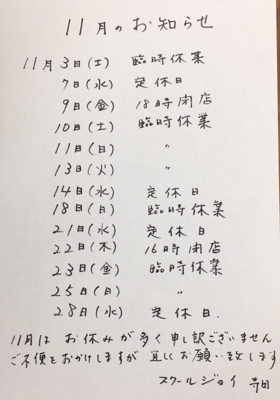 11月のお知らせ
11月3日(土) 臨時休業
7日(水) 定休日
9日(金) 18時閉店
10日(土) 臨時休業
11日(日) 〃
13日(火) 〃
14日(水) 定休日
18日(月) 臨時休業
21日(水) 定休日
22日(木) 16時閉店
23日(金) 臨時休業
25日(月) 〃
28日(水) 定休日.
11月は お休みが多く申し訳ございません
ご不便をおかけしますが 宜しくお願い致します
スクールジョイ